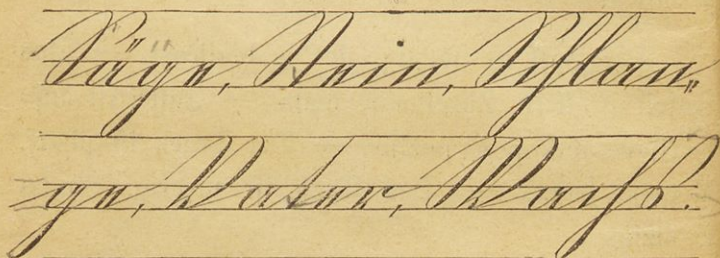 Säge, Stein, Schlan„
ge, Vater, Wachs.